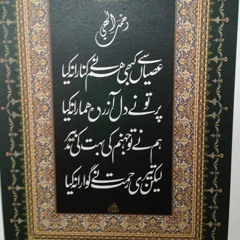 رحمتِ الٰہی
عصیاں سے کبھی ہم نے کنارا نہ کیا
پر تو نے دل آزردہ ہمارا نہ کیا
ہم نے تو جہنم کی بہت کی تدبیر
لیکن تیری رحمت نے گوارا نہ کیا